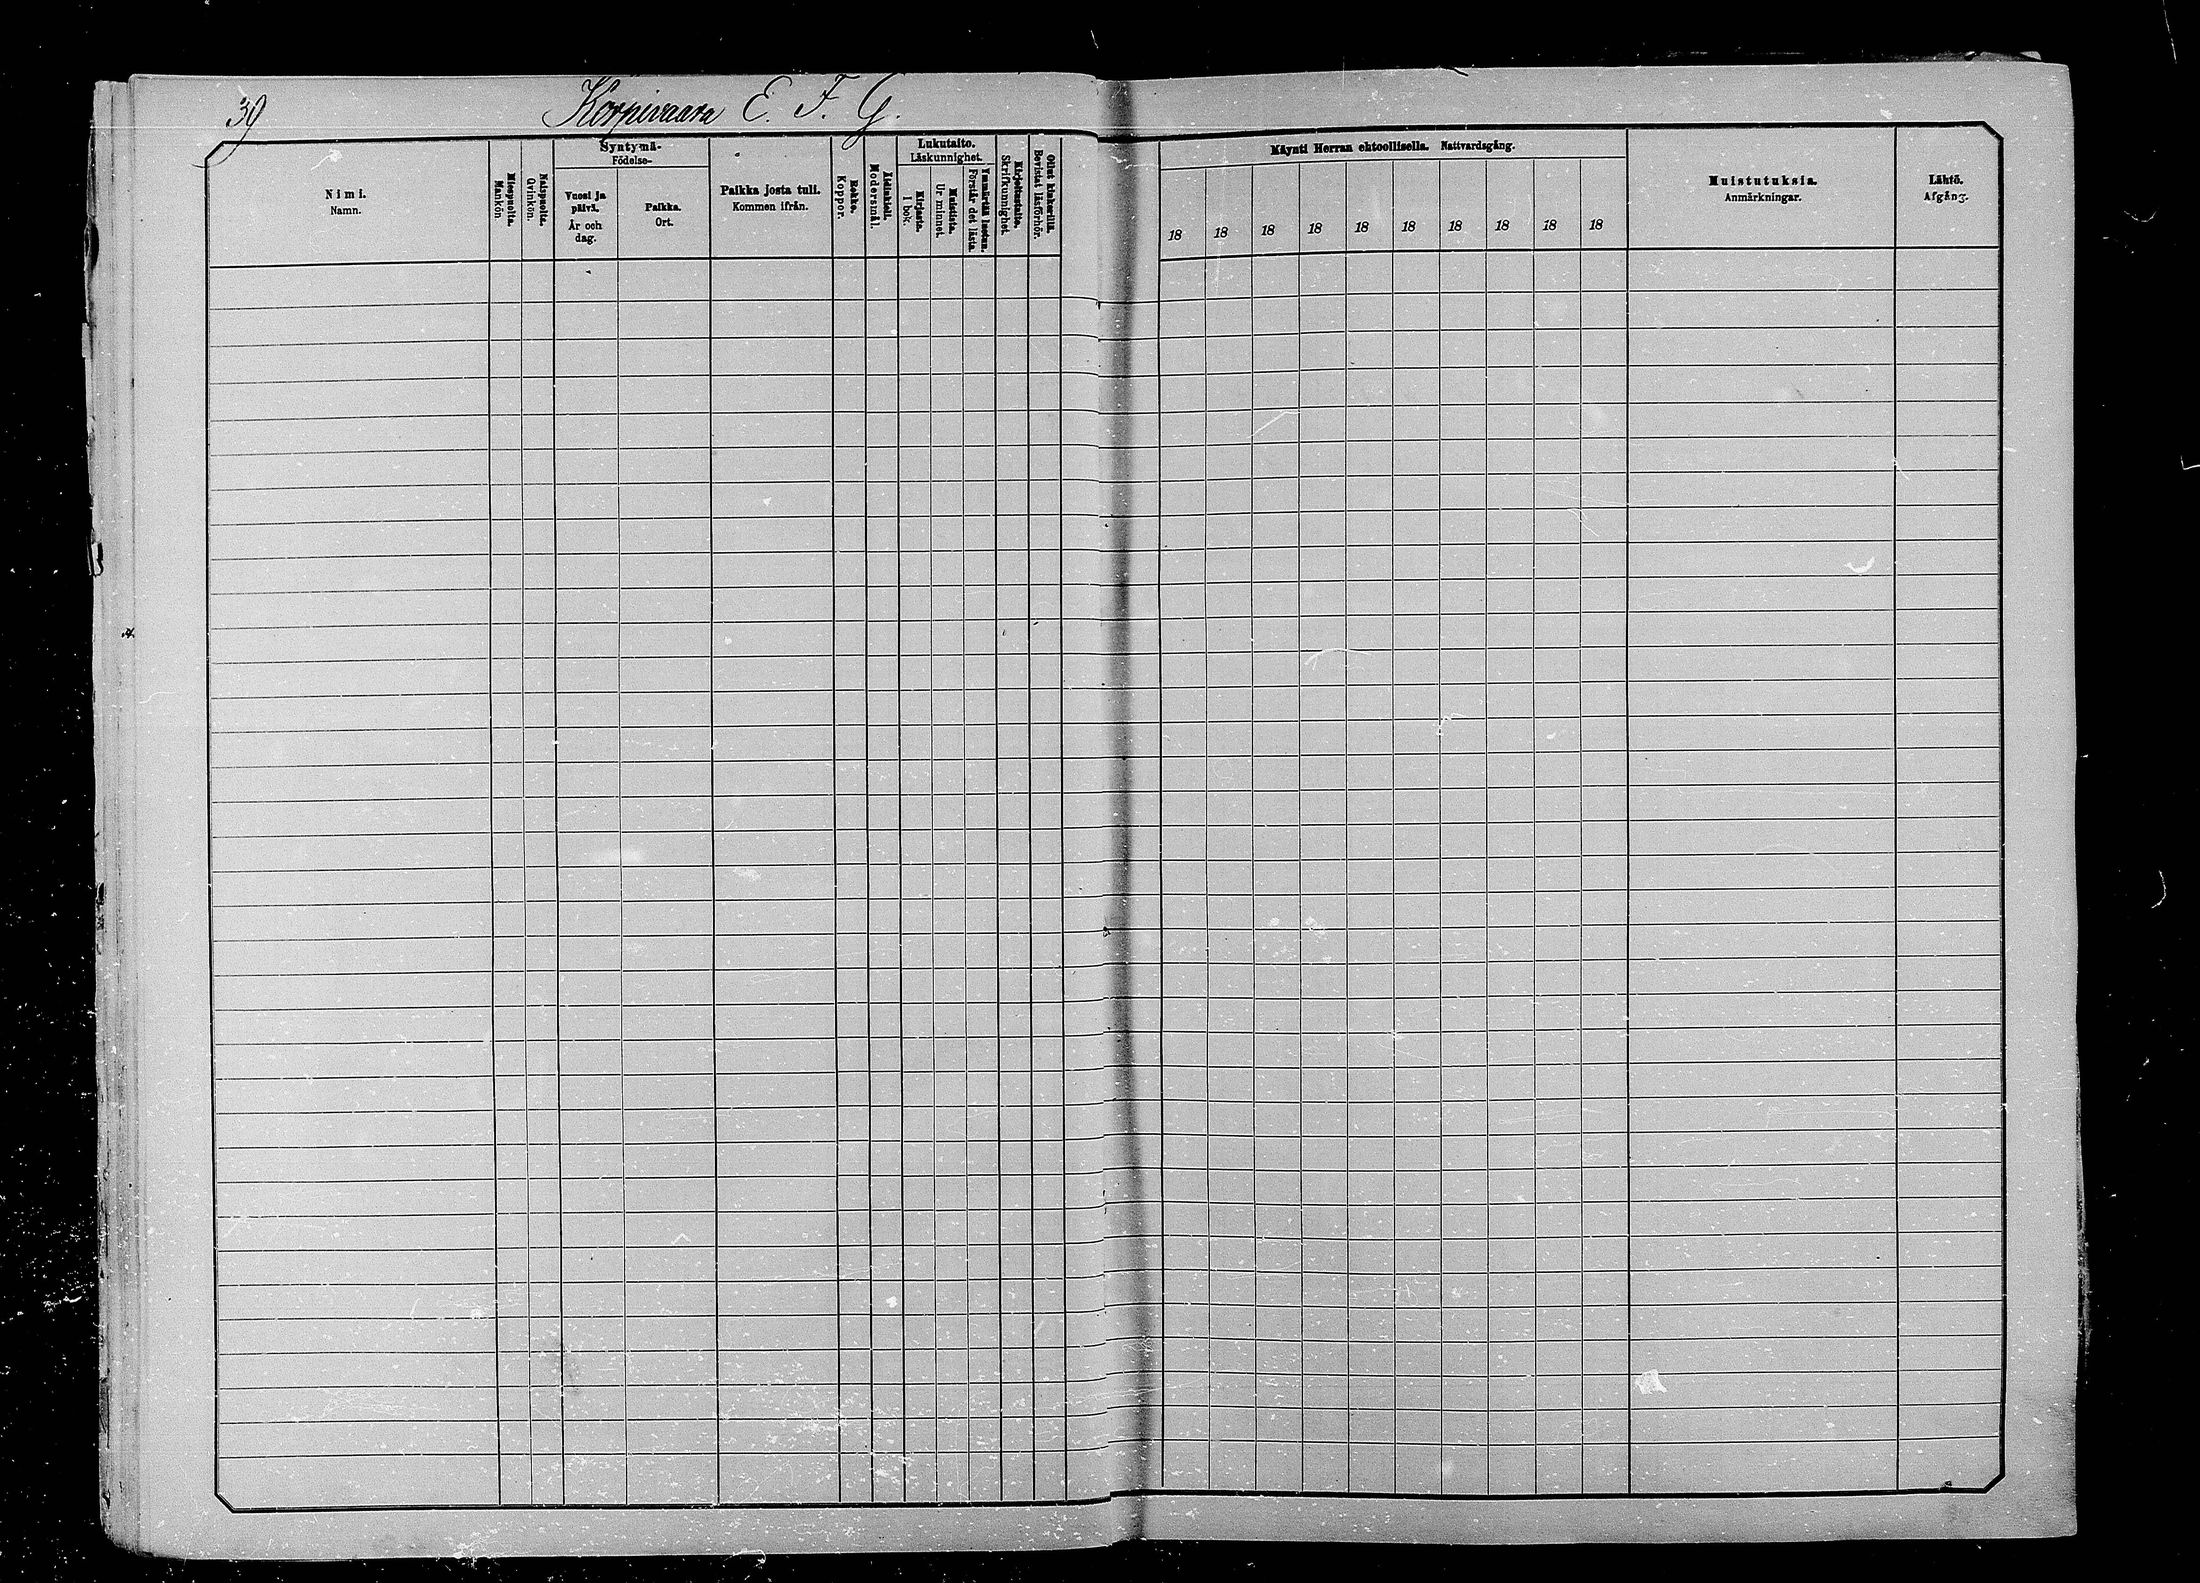 39
Korpivaara E. F. G.
Nimi.
Namn.
Miespuolta.
Mankön.
Naispuolta.
Qvinkön.
Syntymä-
Födelse-
Vuosi ja
päivä.
År och
dag.
Paikka.
Ort.
Paikka josta tuli.
Kommen ifrån.
Rokko.
Koppor.
Äidinkieli.
Modersmål.
Lukutaito.
Läskunnighet.
Kirjasta.
I bok.
Muistista.
Ur minnet.
Ymmärtää luetun.
Förstår det lästa.
Kirjoitustaito.
Skrifkunnighet.
Ollut kinkerillä.
Bevistat läsförhör.
Käynti Herran ehtoollisella. Nattvardsgång.
18 18 18 18 18 18 18 18 18 18
Muistutuksia.
Anmärkningar.
Lähtö.
Afgång.